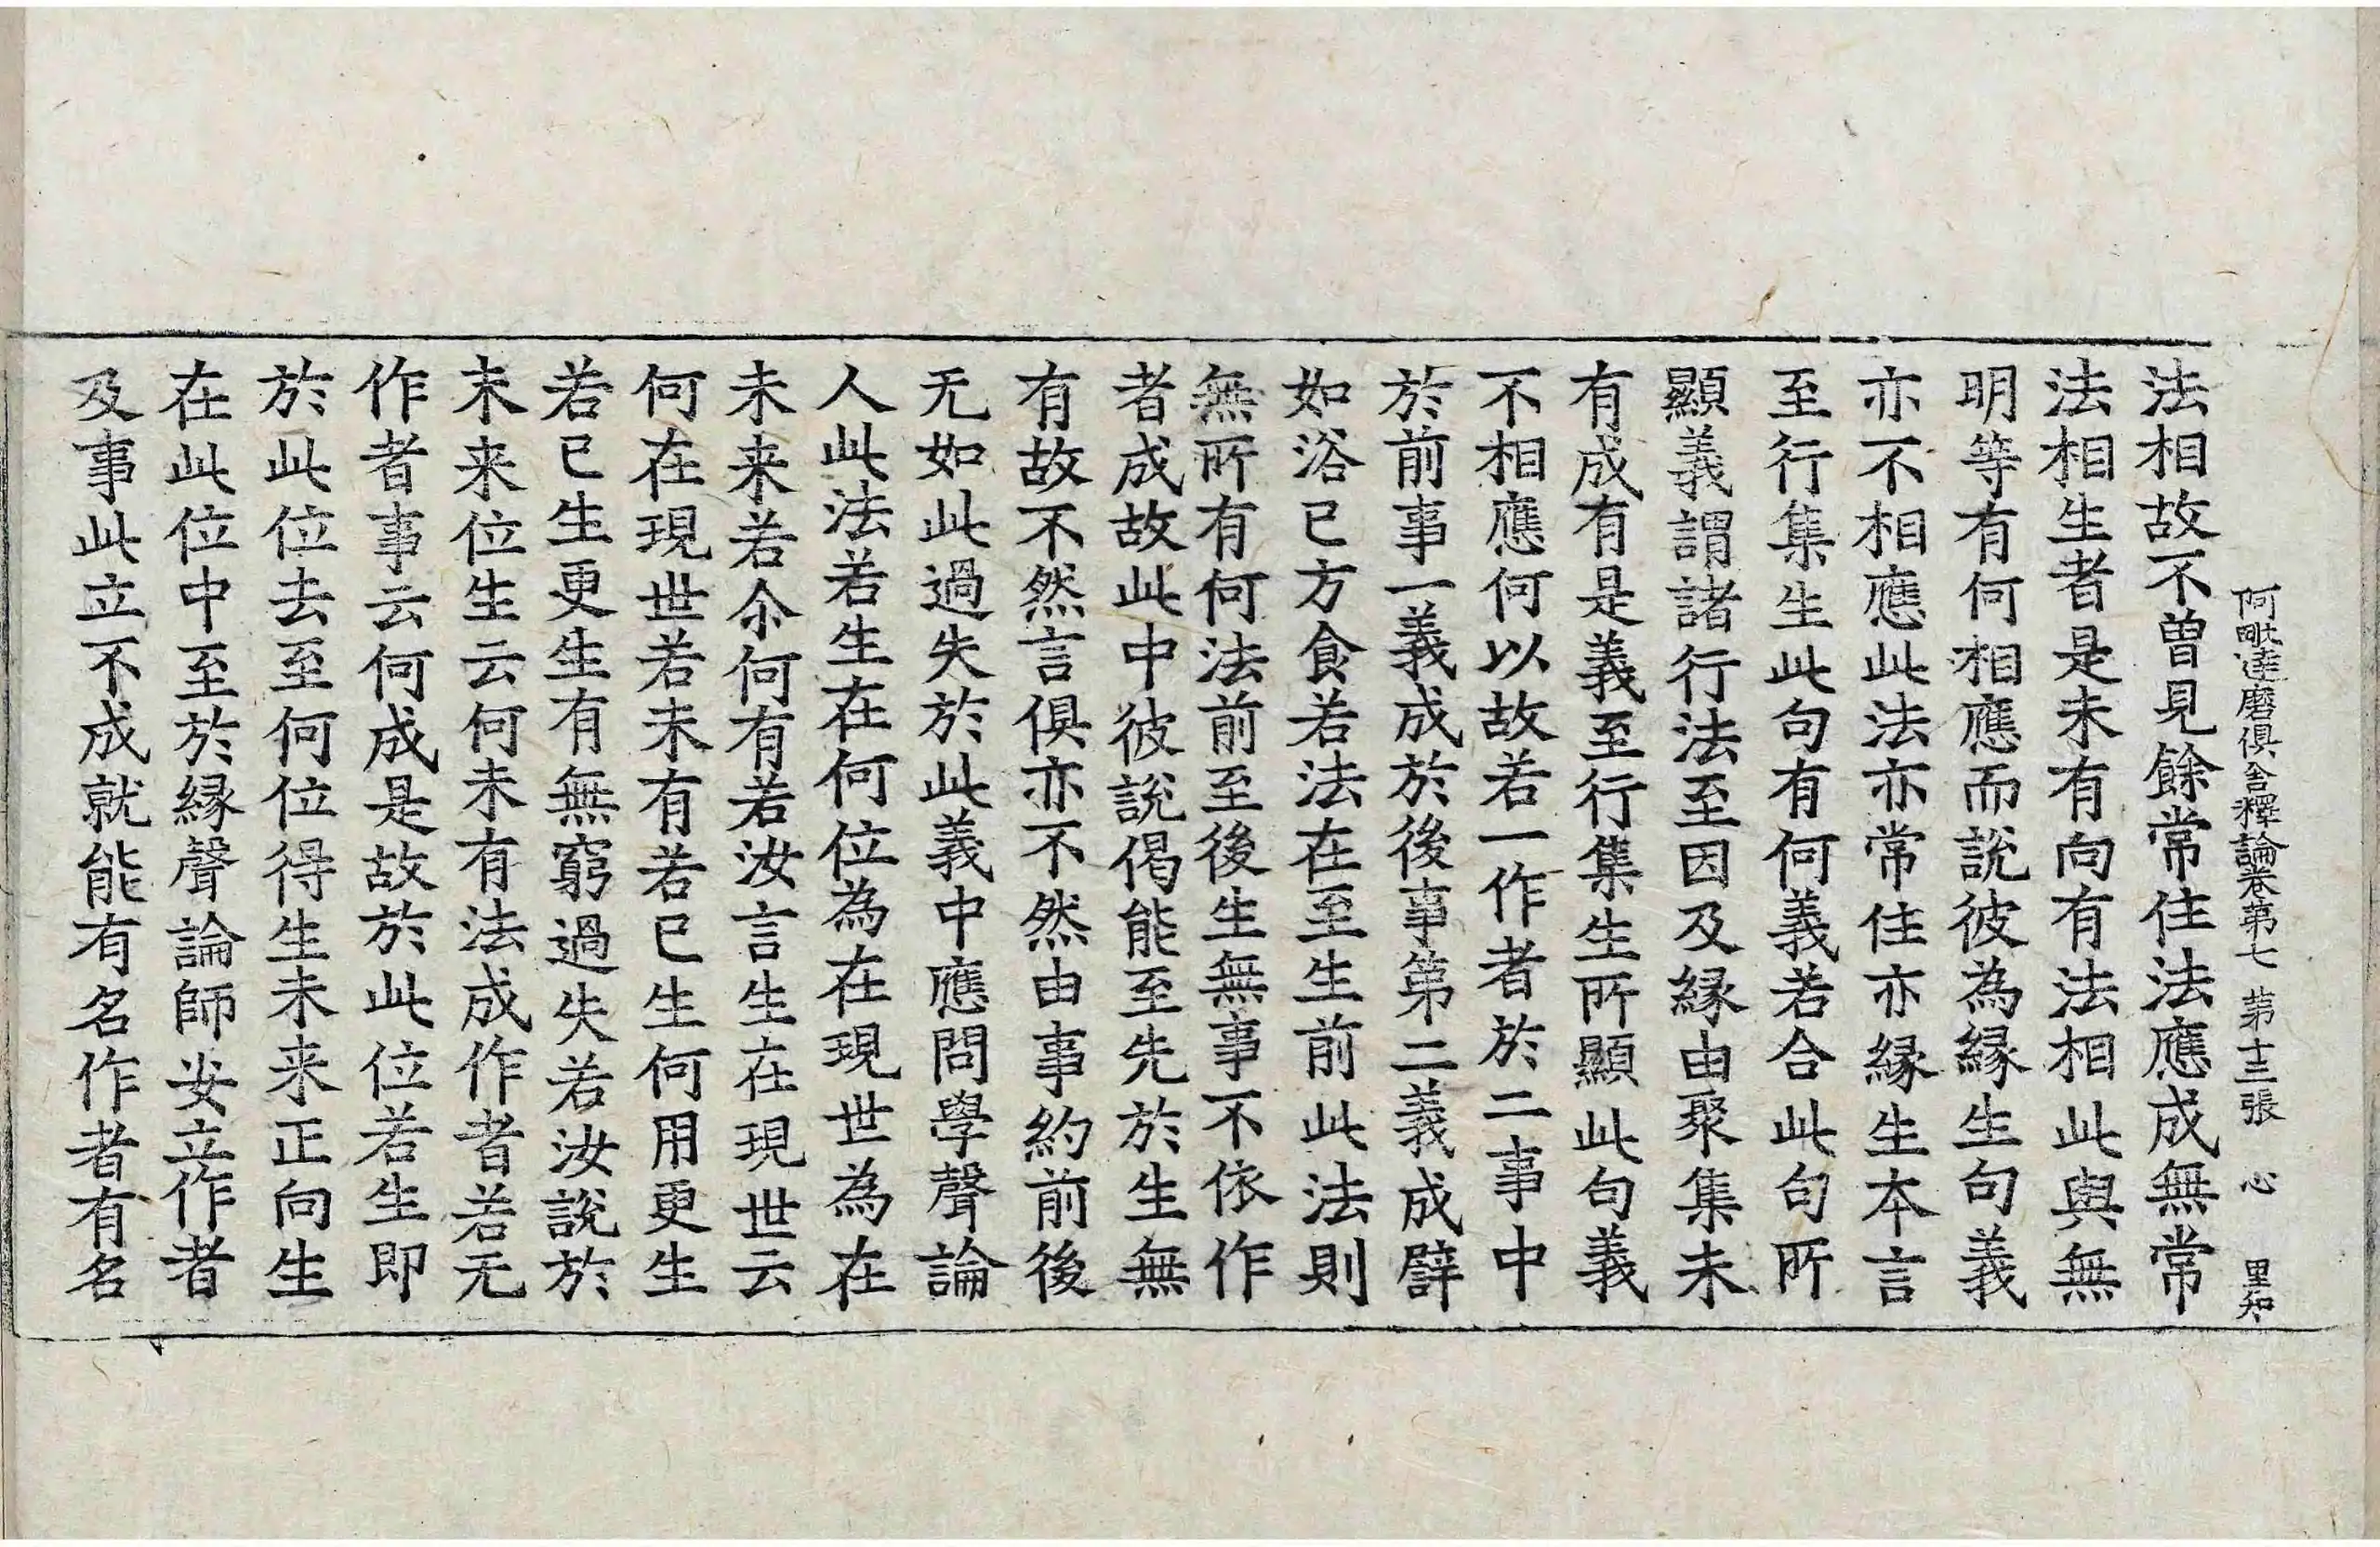 阿毗達磨俱舍釋論卷第七 第十三張 心 里和
法相故不曾見餘常住法應成無常
法相生者是未有向有法相此與無
明等有何相應而說彼為縁生句義
亦不相應此法亦常住亦縁生本言
至行集生此句有何義若合此句所
顯義謂諸行法至因及縁由聚集未
有成有是義至行集生所顯此句義
不相應何以故若一作者於二事中
於前事一義成於後事第二義成譬
如浴已方食若法在至生前此法則
無所有何法前至後生無事不依作
者成故此中彼說偈能至先於生無
有故不然言俱亦不然由事約前後
无如此過失於此義中應問學聲論
人此法若生在何位為在現世為在
未来若尒何有若汝言生在現世云
何在現世若未有若已生何用更生
若已生更生有無窮過失若汝說於
未来位生云何未有法成作者若无
作者事云何成是故於此位若生即
於此位去至何位得生未来正向生
在此位中至於縁聲論師安立作者
及事此立不成就能有名作者有名